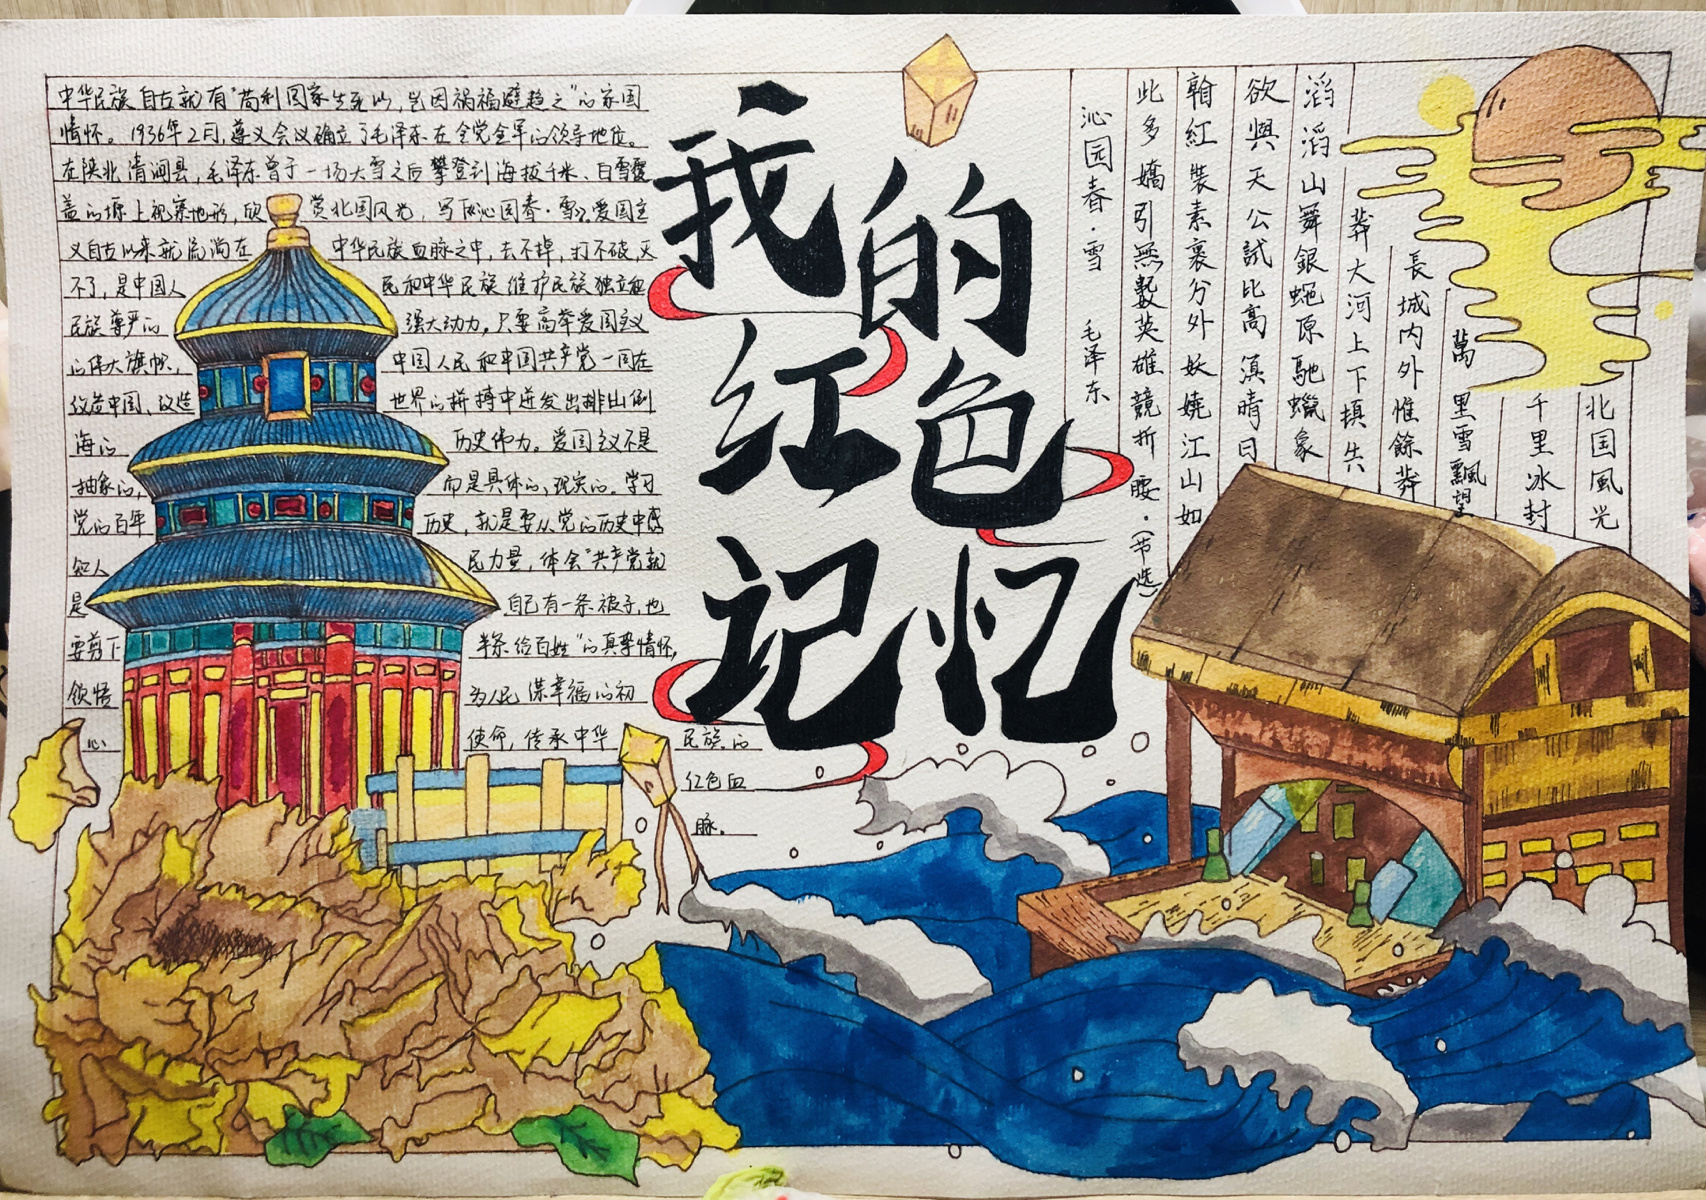 我的红色记忆
中华民族自古就有"苟利国家生死以,岂因祸福避趋之"的家国
情怀。1936年2月,遵义会议确立了毛泽东在全党全军的领导地位。
在陕北清涧县,毛泽东曾于一场大雪之后攀登到海拔千米、白雪覆
盖的塬上视察地形,欣赏北国风光,写下《沁园春·雪》,爱国主
义自古以来就流淌在中华民族血脉之中,去不掉,打不破,灭
不了,是中国人民和中华民族维护民族独立和
民族尊严的强大动力,只要高举爱国主义
的伟大旗帜,中国人民和中国共产党一同在
改造中国、改造世界的拼搏中迸发出排山倒
海的历史伟力。爱国主义不是
抽象的,而是具体的、现实的。学习
党的百年历史,就是要从党的历史中感
知人民力量,体会"共产党就
是自己有一条被子,也
要剪下半条给百姓"的真挚情怀,
领悟为人民谋幸福的初
心使命,传承中华民族的
红色血
脉。
北国風光
千里冰封
萬里雪飄望
長城内外惟餘莽
莽大河上下頓失
滔滔山舞銀蛇原馳蠟象
欲與天公試比高滇晴日
翰紅裝素裹分外妖娆江山如
此多嬌引無數英雄競折腰·(节选)
沁园春·雪 毛泽东